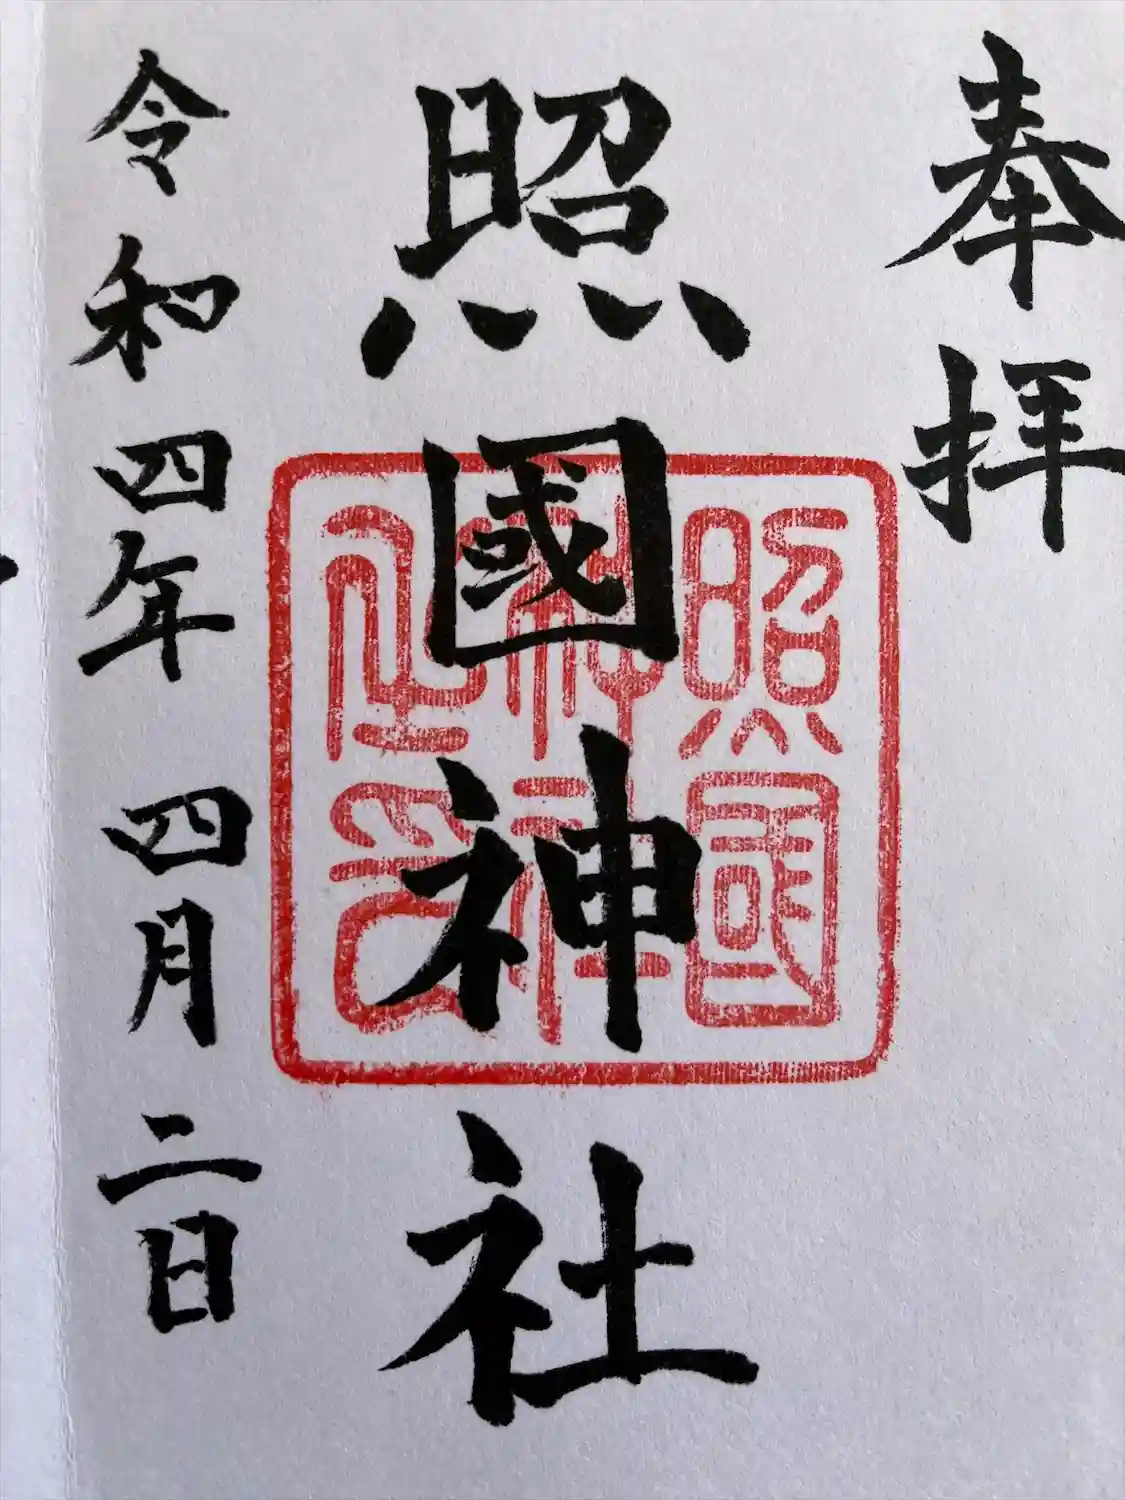 奉拝
照國神社
照國
神社
之印
令和四年 四月 二日